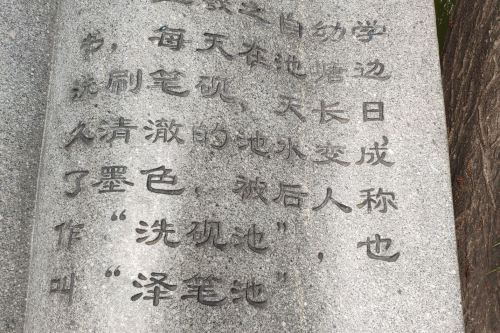 之自幼学
书，每天在池塘边
洗刷笔砚，天长日
久清澈的池水变成
了墨色，被后人称
作“洗砚池”，也
叫“泽笔池”